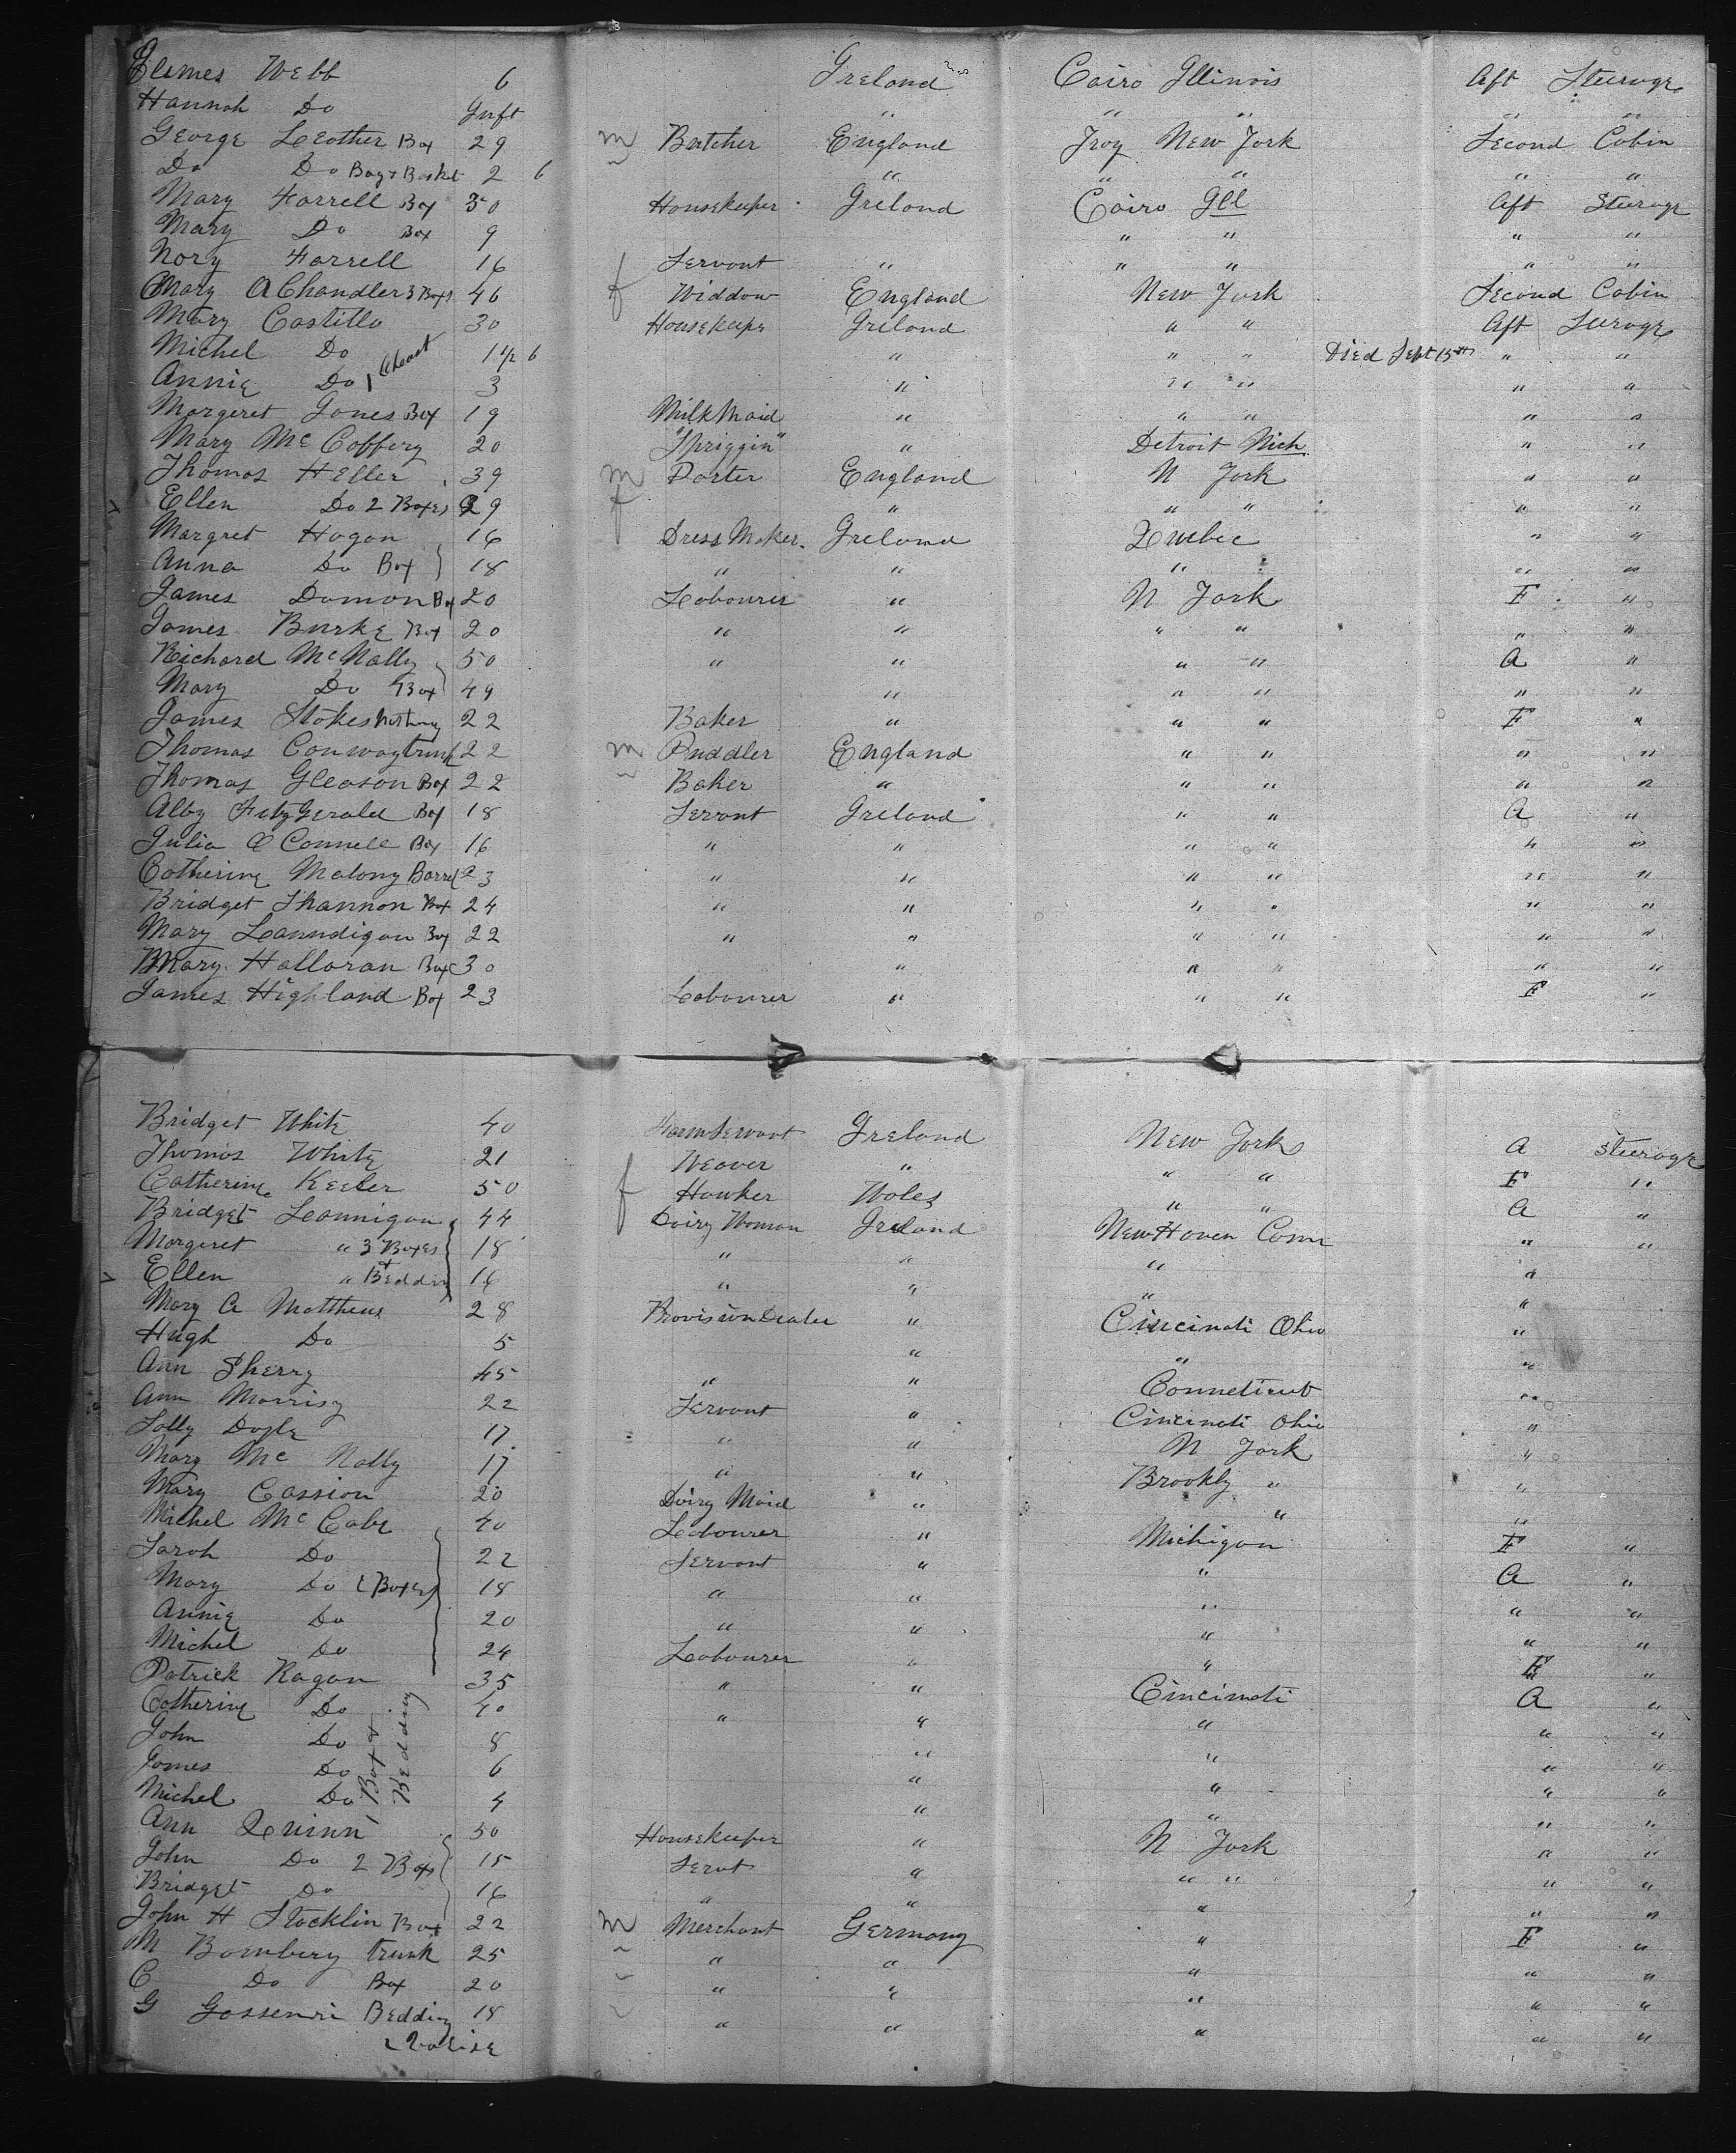 Elemes Webb 6 Ireland Cairo Illinois Aft Steerage
Hannah Do Inft " " " " "
George Leother Box 29 m Butcher England Troy New York Second Cabin
Do Do Bag & Basket 2 6 " " " " "
Mary Farrell Box 30 Housekeeper Ireland Cairo Ill Aft Steerage
Mary Do Box 9 " " " "
Nory Farrell 16 Servant " " " " "
Mary A Chandler 3 Boxes 46 f Widdow England New York Second Cabin
Mary Costillo 30 Housekeepr Ireland " " Aft Steerage
Michel Do 1 Cheast 1 1/2 6 " " " Died Sept 15th " "
Annie Do 3 " " " " "
Margeret Jones Box 19 Milk Maid " " " " "
Mary Mc Coffery 20 "Spriggin" " Detroit Mich. " "
Thomas Heller 39 m Porter England N York " "
Ellen Do 2 Boxes 29 f " " " " "
Margret Hogan 16 Dress Maker Ireland Quebec " "
Anna Do Box 18 " " " " "
James Damon Box 20 Labourer " N York F "
James Burke Box 20 " " " " " "
Richard McNally 50 " " " " A "
Mary Do Box 49 " " " " "
James Stokes Nothing 22 Baker " " " F "
Thomas Conway trunk 22 m Puddler England " " " "
Thomas Gleason Box 22 Baker " " " " "
Alby FitzGerald Box 18 Servant Ireland " " A "
Julia O Connell Box 16 " " " " " "
Catherine Malony Barrel 23 " " " " " "
Bridget Shannon Box 24 " " " " " "
Mary Lanndigan Box 22 " " " " " "
Mary Halloran Box 30 " " " " "
James Highland Box 23 Labourer " " " F "
Bridget White 40 Farm Servant Ireland New York A Steerage
Thomas White 21 Weaver " " " F "
Catherine Keeler 50 f Hawker Wales " " A "
Bridget Leonnigan 44 Dairy Woman Ireland New Haven Conn " "
Margeret " 3 Boxes 18 " " " "
Ellen " + Bedding 16 " " " "
Mary A Matthews 28 Provision Dealer " Cincinati Ohio "
Hugh Do 5 " " "
Ann Sherry 45 " " Conneticut "
Ann Morrisy 22 Servant " Cincineti Ohio "
Solly Doyle 17 " " N York "
Mary Mc Nally 17 " " Brookly " "
Mary Cassion 20 Dairy Maid " " "
Michel Mc Cabe 40 Labourer " Michigan F "
Sarah Do 22 Servant " " A "
Mary Do 2 Boxes 18 " " " " "
Annie Do 20 " " " " "
Michel Do 24 Labourer " " F "
Patrick Ragan 35 " " Cincinnati A "
Catherine Do 40 " " " " "
John Do 8 " " " "
James Do 6 " " " "
Michel Do 1 Box & Bedding 4 " " " "
Ann Quinn 50 Housekeeper " N York " "
John Do 2 Box 15 Servt " " " " "
Bridget Do 16 " " " " "
John H Stocklin Box 22 m Merchant Germany " F "
M Bomberg trunk 25 " " " " "
C Do Box 20 " " " " "
G Gossenri Bedding 18 " " " " "
& Valise